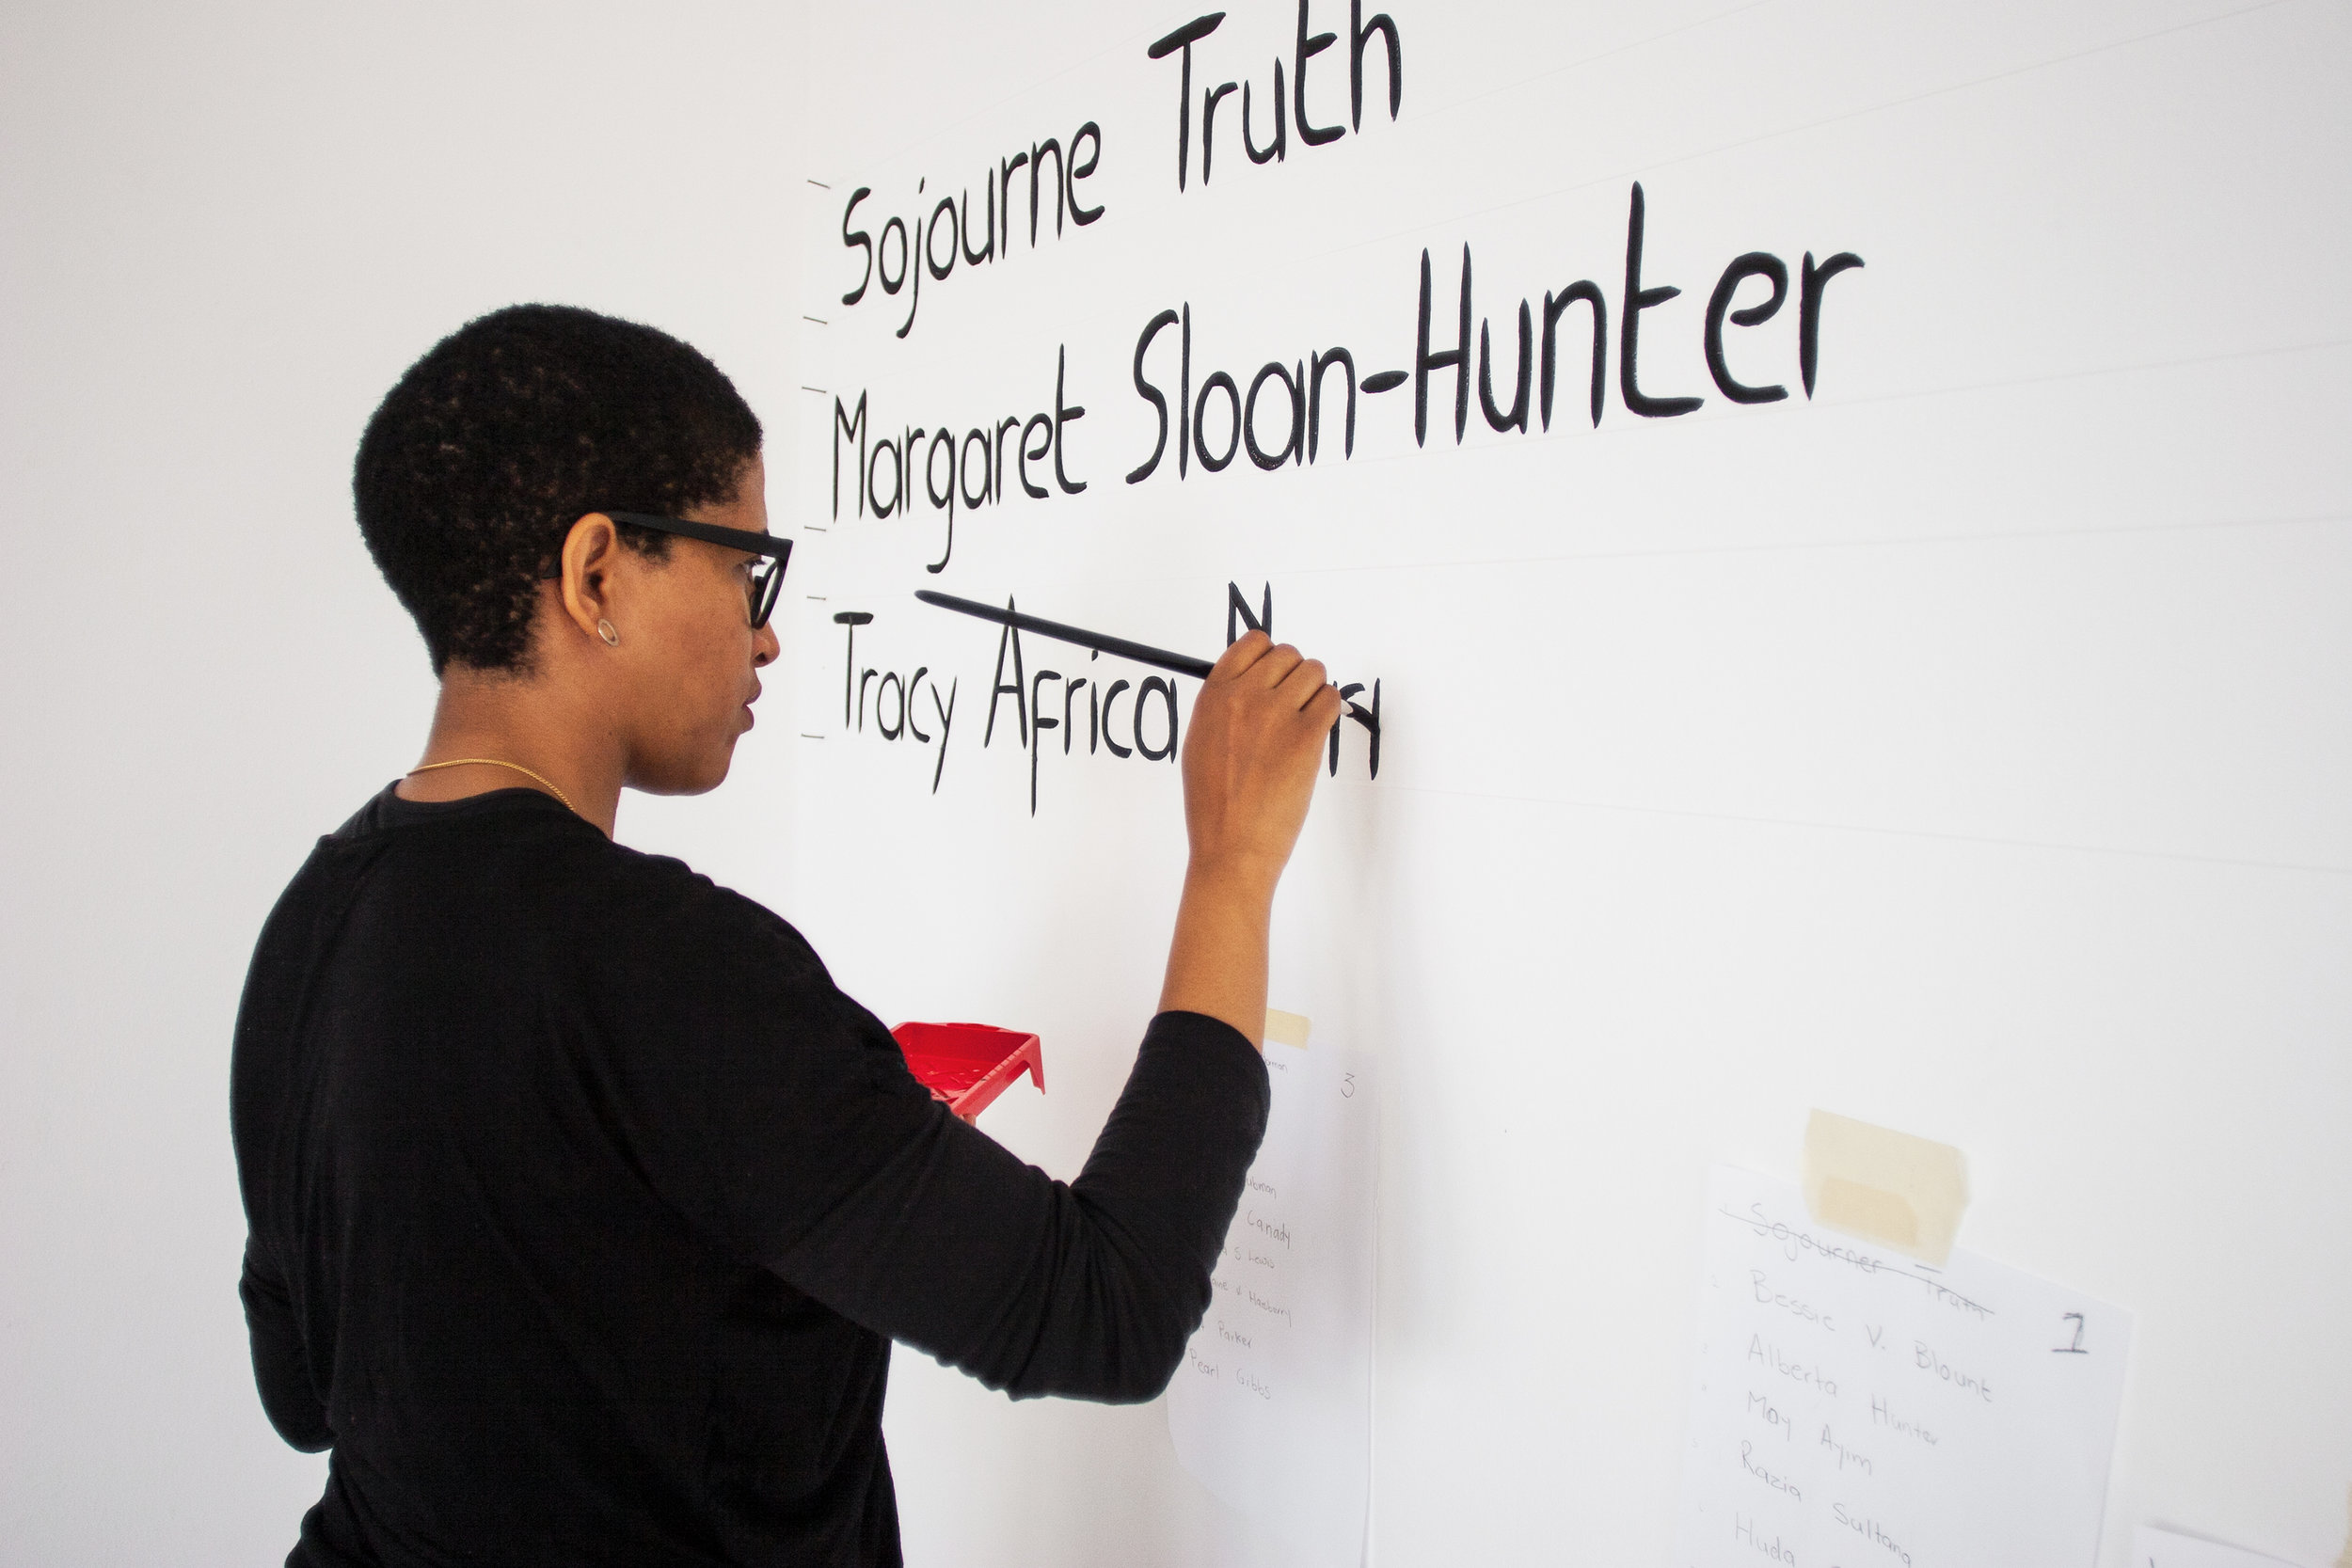 Sojourne Truth
Margaret Sloan-Hunter
Tracy Africa
3
Canady
Parker
Pearl Gibbs
Sojourner Truth
1
Bessie V. Blount
Alberta Hunter
May Ayim
Razia Sultana
Huda